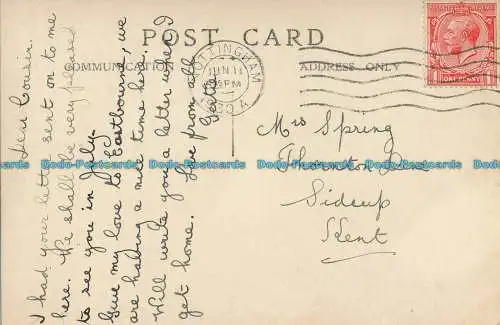 POST CARD
COMMUNICATION
ADDRESS ONLY
NOTTINGHAM
JUN 11
PM
ONE PENNY
Dear Cousin.
I had your letter sent on to me
here. We shall be very pleased
to see you in July.
Give my love to
Eastbourne, we
are having a nice time here.
Will write you a letter when I
get home. Love from all
Gertie
Mrs Spring
Thornton
Sidcup
Kent
Dodo-Postcards.com Dodo-Postcards.com Dodo-Postcards.com Dodo-Postcards.com